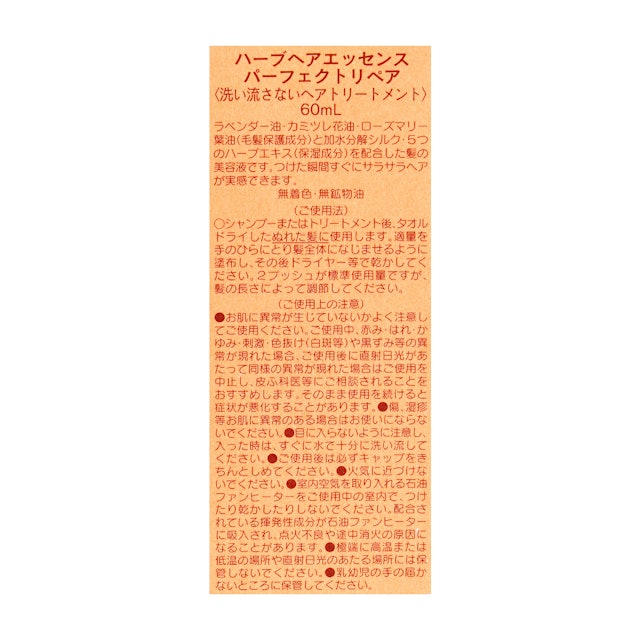 ハーブヘアエッセンス
パーフェクトリペア
〈洗い流さないヘアトリートメント〉
60mL
ラベンダー油・カミツレ花油・ローズマリー
葉油(毛髪保護成分)と加水分解シルク・5つ
のハーブエキス(保湿成分)を配合した髪の
美容液です。つけた瞬間すぐにサラサラヘア
が実感できます。
無着色・無鉱物油
(ご使用法)
○シャンプーまたはトリートメント後、タオル
ドライしたぬれた髪に使用します。適量を
手のひらにとり髪全体になじませるように
塗布し、その後ドライヤー等で乾かしてく
ださい。2プッシュが標準使用量ですが、
髪の長さによって調節してください。
(ご使用上の注意)
●お肌に異常が生じていないかよく注意し
てご使用ください。ご使用中、赤み・はれ・か
ゆみ・刺激・色抜け(白斑等)や黒ずみ等の異
常が現れた場合、ご使用後に直射日光があ
たって同様の異常が現れた場合はご使用を
中止し、皮ふ科医等にご相談されることを
おすすめします。そのまま使用を続けると
症状が悪化することがあります。●傷、湿疹
等お肌に異常のある場合はお使いにならな
いでください。●目に入らないように注意し、
入った時は、すぐに水で十分に洗い流して
ください。●ご使用後は必ずキャップをき
ちんとしめてください。●火気に近づけな
いでください。●室内空気を取り入れる石油
ファンヒーターをご使用中の室内で、つけ
たり乾かしたりしないでください。配合さ
れている揮発性成分が石油ファンヒーター
に吸入され、点火不良や途中消火の原因に
なることがあります。●極端に高温または
低温の場所や直射日光のあたる場所には保
管しないでください。●乳幼児の手の届か
ないところに保管してください。